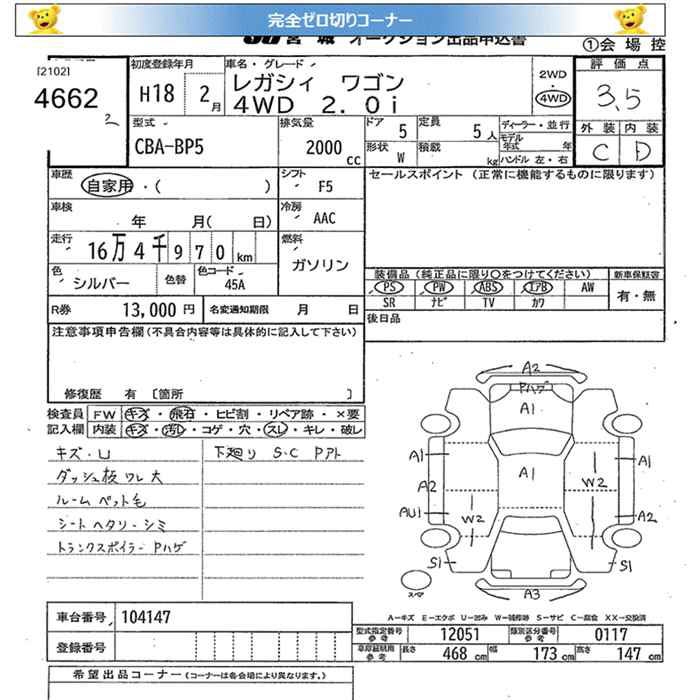 完全ゼロ切りコーナー
JU 宮城 オークション出品申込書
①会場控
[2102]
4662
2
初度登録年月
H18 2月
車名・グレード
レガシィ ワゴン
4WD 2.0i
2WD
・
4WD
評価点
3.5
外装 内装
C D
型式
CBA-BP5
排気量
2000 cc
ドア 5
形状 W
定員 5人
積載 kg
ディーラー・並行
モデル年式 年
ハンドル 左・右
車歴
自家用・( )
シフト
F5
セールスポイント (正常に機能するものに限ります)
車検
年 月( 日)
冷房
AAC
走行
16万4千970km
燃料
ガソリン
色
シルバー
色替
色コード
45A
装備品(純正品に限り○をつけてください)
新車保証書
PS PW ABS エアB AW
有・無
SR ナビ TV カワ
R券 13,000円
名変通知期限 月 日
後日品
注意事項申告欄(不具合内容等は具体的に記入して下さい)
修復歴 有 [箇所 ]
検査員 FW キズ・飛石・ヒビ割・リペア跡・×要
記入欄 内装 キズ・汚レ・コゲ・穴・スレ・キレ・破レ
キズ・U
下廻り S・C Pアト
ダッシュ板 ワレ 大
ルーム ペット毛
シート ヘタリ・シミ
トランクスポイラー Pハゲ
A2
Pハゲ
A1
A1
A1
A1
A2
W2
AU1
W2
A2
S1
S1
A3
スペア
A-キズ E-エクボ U-凹み W-補修跡 S-サビ C-腐食 XX-交換済
車台番号 104147
登録番号
型式指定番号 参考 12051
類別区分番号 参考 0117
参考 長さ 468cm 幅 173cm 高さ 147cm
希望出品コーナー (コーナーは各会場により異なります。)